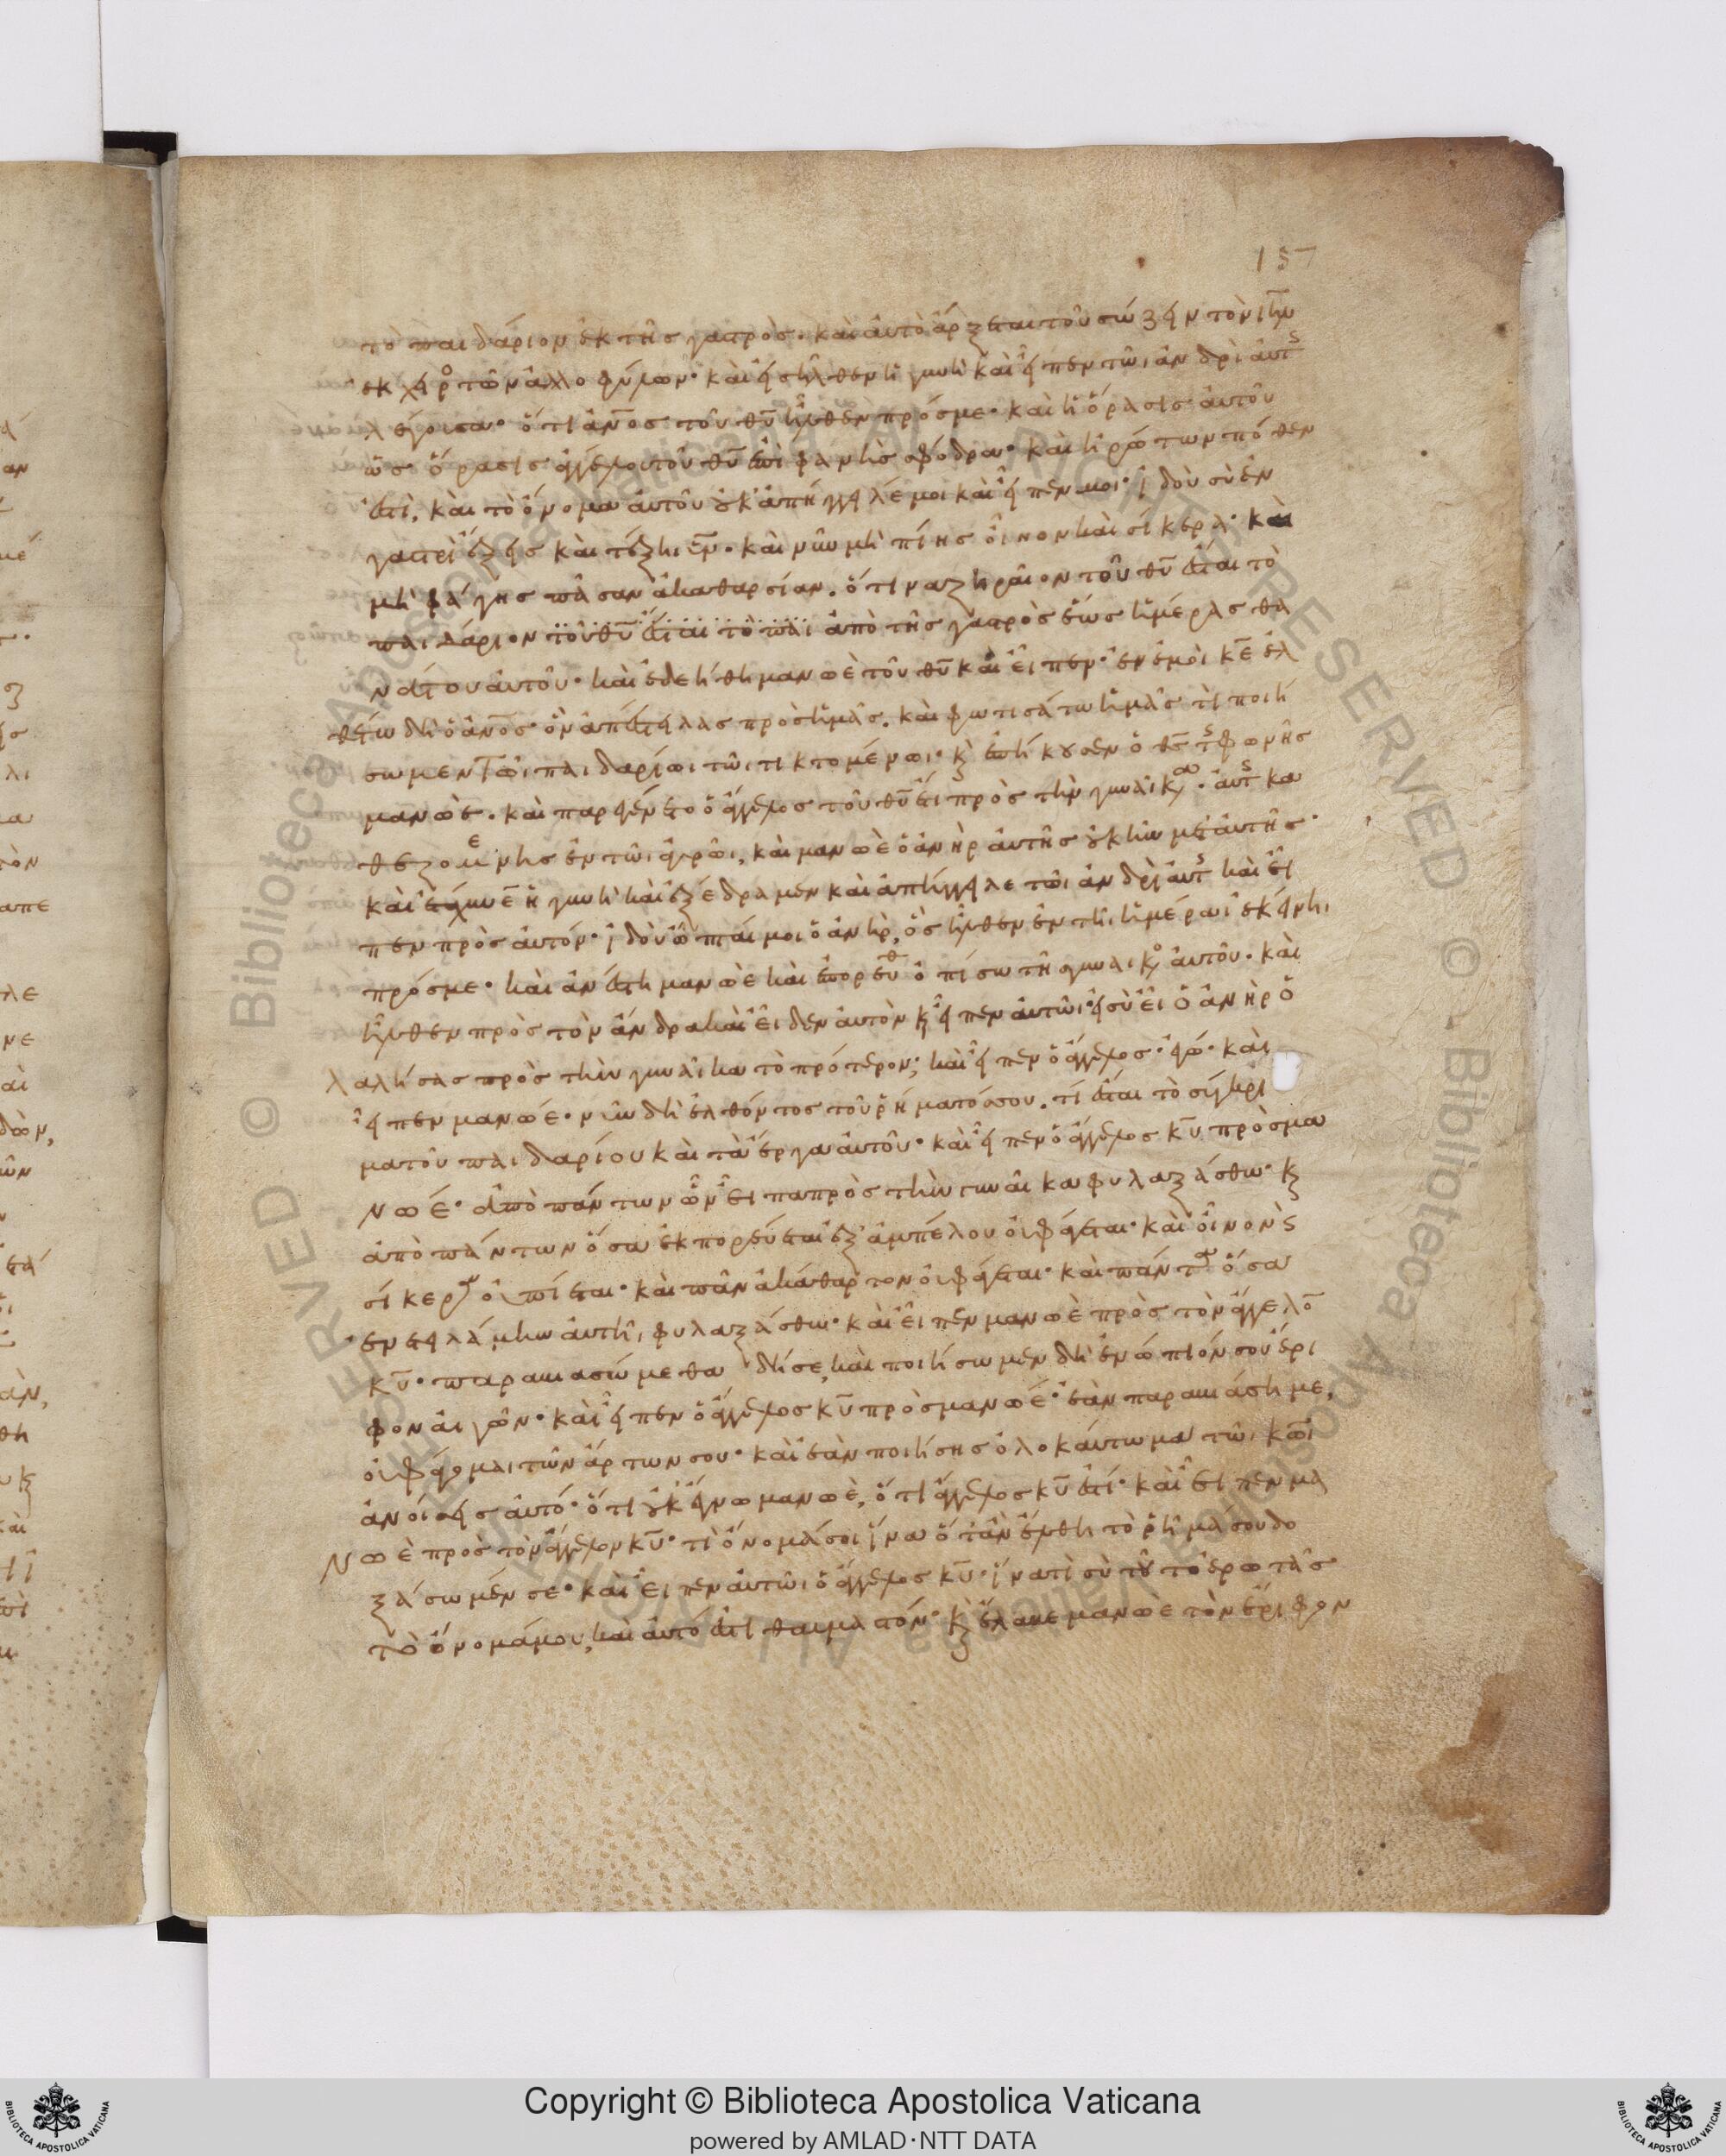 157
τὸ παιδάριον ἐκ τῆς γαστρὸς· καὶ αὐτὸ ἄρξεται τοῦ σώζειν τὸν ιηλ
ἐκ χειρο τῶν ἀλλοφύλων· καὶ εἰσῆλθεν ἡ γυνὴ καὶ εἶπεν τῶι ἀνδρὶ αὐτ
λέγουσα· ὅτι ἄνος τοῦ θυ ἦλθεν πρός με· καὶ ἡ ὅρασις αὐτοῦ
ὡς ὅρασις ἀγγέλου τοῦ θυ ἐπιφανὴς σφόδρα· καὶ ἠρώτων πόθεν
ἐστὶ, καὶ τὸ ὄνομα αὐτοῦ οὐκ ἀπήγγειλέ μοι καὶ εἶπέν μοι· ἰδοὺ σὺ ἐν
γαστρὶ ἕξεις καὶ τέξηι υν· καὶ νῦν μὴ πίης οἶνον καὶ σίκερα· καὶ
μὴ φάγης πᾶσαν ἀκαθαρσίαν· ὅτι ναζηραῖον τοῦ θυ ἔσται τὸ
παιδάριον τοῦ θυ ἔσται τὸ παι ἀπὸ τῆς γαστρὸς ἕως ἡμέρας θα
νάτου αὐτοῦ· καὶ ἐδεήθη μανωὲ τοῦ θυ καὶ εἶπεν· ἐν ἐμοὶ κε ἐλ
θέτω δὴ ὁ ἄνος· ὃν ἀπέστειλας πρὸς ἡμᾶς· καὶ φωτισάτω ἡμᾶς τί ποιή
σωμεν τῶι παιδαρίωι τῶι τικτομένωι· κ ἐπήκουσεν ὁ θς τ φωνῆς
μανωὲ· καὶ παρεγένετο ὁ ἄγγελος τοῦ θυ ἔτι πρὸς τὴν γυναῖκα· αὐτ κα
θεζομένης ἐν τῶι ἀγρῶι, καὶ μανωὲ ὁ ἀνὴρ αὐτῆς οὐκ ἦν μετ αὐτῆς·
καὶ ἐτάχυνε ἡ γυνὴ καὶ ἐξέδραμεν καὶ ἀπήγγειλε τῶι ἀνδρὶ αὐτ καὶ εἶ
πεν πρὸς αὐτόν· ἰδοὺ ὦπταί μοι ὁ ἀνὴρ, ὃς ἦλθεν ἐν τῆι ἡμέραι ἐκείνηι
πρός με· καὶ ἀνέστη μανωὲ καὶ ἐπορεύθ ὀπίσω τῆ γυναικο αὐτοῦ· καὶ
ἦλθεν πρὸς τὸν ἄνδρα καὶ εἶδεν αὐτὸν κ εἶπεν αὐτῶι· εἰ σὺ εἶ ὁ ἀνὴρ ὁ
λαλήσας πρὸς τὴν γυναῖκα τὸ πρότερον; καὶ εἶπεν ὁ ἄγγελος· ἐγώ· καὶ
εἶπεν μανωέ· νῦν δὴ ἐλθόντος τοῦ ῥήματός σου· τί ἔσται τὸ σύγκρι
μα τοῦ παιδαρίου καὶ τὰ ἔργα αὐτοῦ· καὶ εἶπεν ὁ ἄγγελος κυ πρὸς μα
νωέ· ἀπὸ πάντων ὧν εἶπα πρὸς τὴν γυναῖκα φυλαξάσθω· κ
ἀπὸ πάντων ὅσα ἐκπορεύεται ἐξ ἀμπέλου οὐ φάγεται· καὶ οἶνον κ
σίκερα οὐ πίεται· καὶ πᾶν ἀκάθαρτον οὐ φάγεται· καὶ πάντα ὅσα
ἐνετειλάμην αὐτῆι, φυλαξάσθω· καὶ εἶπεν μανωὲ πρὸς τὸν ἄγγελο
κυ· παραβιασώμεθα δή σε, καὶ ποιήσωμεν δὴ ἐνώπιόν σου ἔρι
φον αἰγῶν· καὶ εἶπεν ὁ ἄγγελος κυ πρὸς μανωέ· ἐὰν παραβιάση με,
οὐ φάγομαι τῶν ἄρτων σου· καὶ ἐὰν ποιήσης ὁλοκαύτωμα τῶι κωι
ἀνοίσεις αὐτό· ὅτι οὐκ ἔγνω μανωὲ, ὅτι ἄγγελος κυ ἐστί· καὶ εἶπεν μα
νωὲ πρὸς τὸν ἄγγελον κυ· τί ὄνομά σοι ἵνα ὅταν ἔλθη τὸ ῥῆμά σου δο
ξάσωμέν σε· καὶ εἶπεν αὐτῶι ὁ ἄγγελος κυ· ἵνα τί σὺ τοῦτο ἐρωτᾶς
τὸ ὄνομά μου, καὶ αὐτό ἐστι θαυμαστόν· κ ἔλαβε μανωὲ τὸν ἔριφον
Copyright © Biblioteca Apostolica Vaticana
powered by AMLAD·NTT DATA